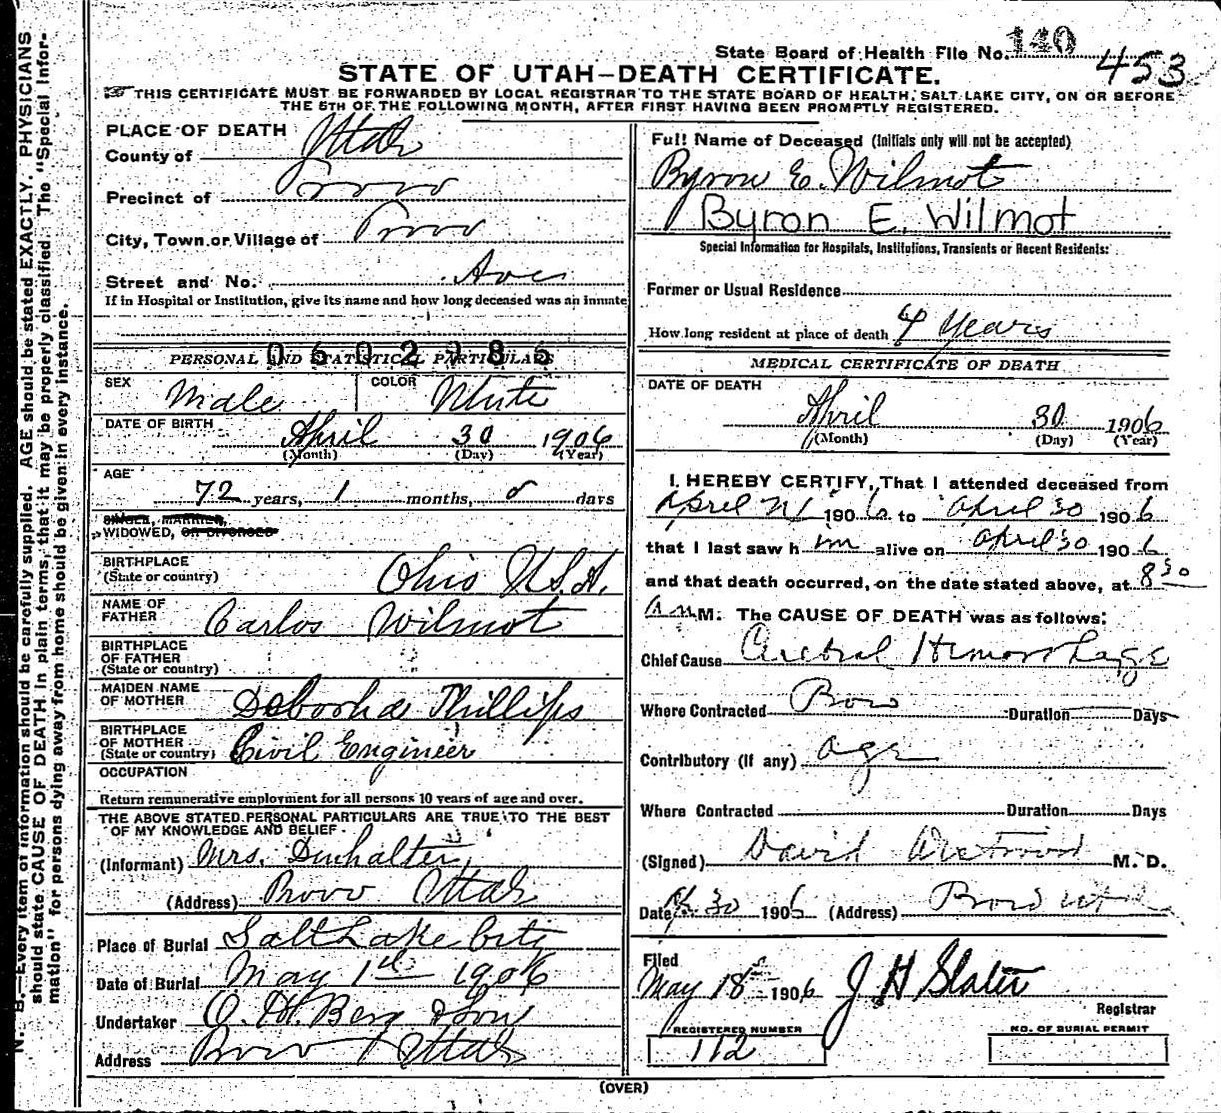 State Board of Health File No. 140
453
STATE OF UTAH—DEATH CERTIFICATE.
THIS CERTIFICATE MUST BE FORWARDED BY LOCAL REGISTRAR TO THE STATE BOARD OF HEALTH, SALT LAKE CITY, ON OR BEFORE
THE 5TH OF THE FOLLOWING MONTH, AFTER FIRST HAVING BEEN PROMPTLY REGISTERED.
N. B.—Every item of information should be carefully supplied. AGE should be stated EXACTLY. PHYSICIANS
should state CAUSE OF DEATH in plain terms, that it may be properly classified. The "Special Infor-
mation" for persons dying away from home should be given in every instance.
PLACE OF DEATH
County of Utah
Precinct of Provo
City, Town or Village of Provo
Street and No. Ave
If in Hospital or Institution, give its name and how long deceased was an inmate
PERSONAL AND STATISTICAL PARTICULARS
SEX Male COLOR White
DATE OF BIRTH April 30 1906
(Month) (Day) (Year)
AGE
72 years, 1 months, days
SINGLE, MARRIED,
WIDOWED, OR DIVORCED
BIRTHPLACE
(State or country) Ohio U.S.A.
NAME OF
FATHER Carlos Wilmot
BIRTHPLACE
OF FATHER
(State or country) ?
MAIDEN NAME
OF MOTHER Deborha Phillips
BIRTHPLACE
OF MOTHER
(State or country) Civil Engineer
OCCUPATION
Return remunerative employment for all persons 10 years of age and over.
THE ABOVE STATED PERSONAL PARTICULARS ARE TRUE TO THE BEST
OF MY KNOWLEDGE AND BELIEF
(Informant) Mrs.
(Address) Provo Utah
Place of Burial Salt Lake City
Date of Burial May 1st 1906
Undertaker O. H. Berg & Son
Address Provo Utah
Full Name of Deceased (initials only will not be accepted)
Byron E. Wilmot
Byron E. Wilmot
Special Information for Hospitals, Institutions, Transients or Recent Residents:
Former or Usual Residence
How long resident at place of death 4 Years
MEDICAL CERTIFICATE OF DEATH
DATE OF DEATH
April 30 1906
(Month) (Day) (Year)
I HEREBY CERTIFY, That I attended deceased from
April 21 1906 to April 30 1906
that I last saw him alive on April 30 1906
and that death occurred, on the date stated above, at 8 30
a M. The CAUSE OF DEATH was as follows:
Chief Cause Cerebral Hemorrhage
Where Contracted Provo Duration Days
Contributory (if any) age
Where Contracted Duration Days
(Signed) David Westwood M. D.
Date Ap 30 1906 (Address) Provo Utah
Filed
May 18 1906 J H Slater
Registrar
REGISTERED NUMBER
112
NO. OF BURIAL PERMIT
(OVER)